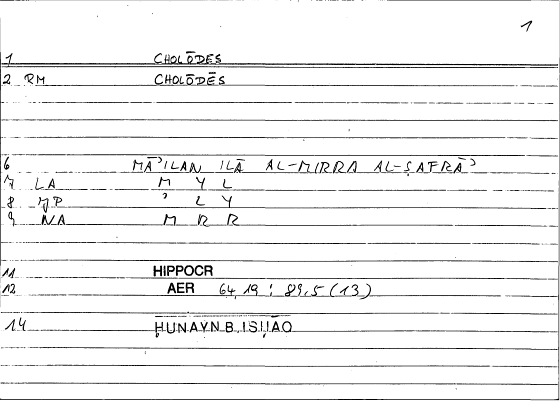 1
1 CHOLŌDES
2 RM CHOLŌDĒS
6 MĀʾILAN ILĀ AL-MIRRA AL-ṢAFRĀʾ
7 LA M Y L
8 MP ʾ L Y
9 NA M R R
11 HIPPOCR
12 AER 64,19 : 89,5 (13)
14 ḤUNAYN B. ISḤĀQ